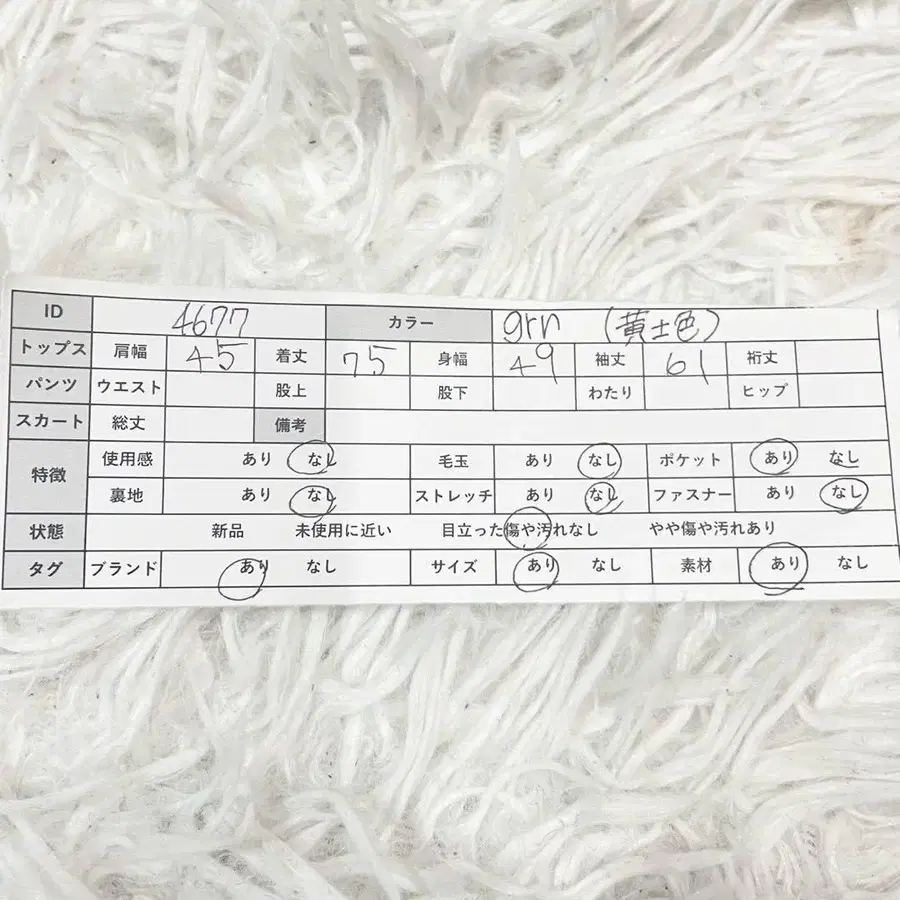 ID 4677 カラー grn (黄土色)
トップス 肩幅 45 着丈 75 身幅 49 袖丈 61 裄丈
パンツ ウエスト 股上 股下 わたり ヒップ
スカート 総丈 備考
特徴 使用感 あり なし 毛玉 あり なし ポケット あり なし
裏地 あり なし ストレッチ あり なし ファスナー あり なし
状態 新品 未使用に近い 目立った傷や汚れなし やや傷や汚れあり
タグ ブランド あり なし サイズ あり なし 素材 あり なし